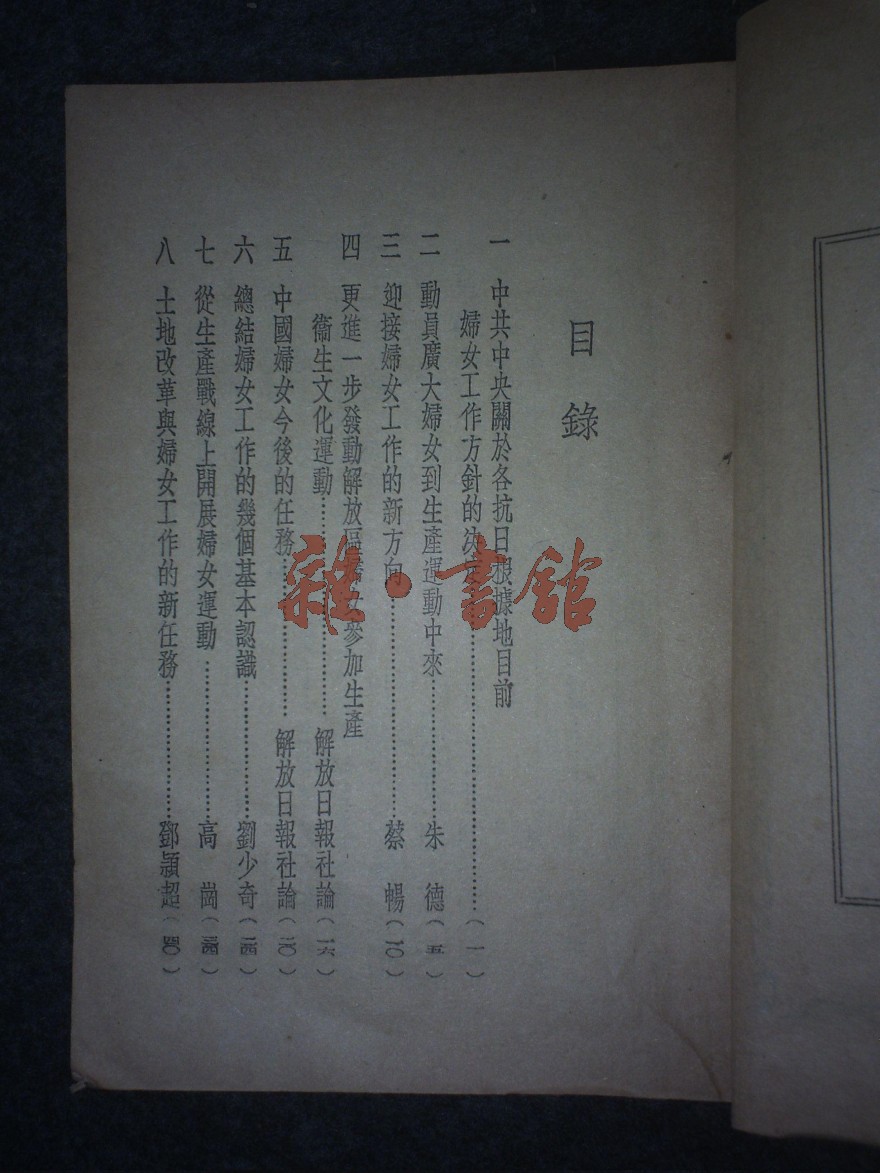 目錄
一 中共中央關於各抗日根據地目前
婦女工作方針的決……(一)
二 動員廣大婦女到生產運動中來……朱 德(五)
三 迎接婦女工作的新方向……蔡 暢(一〇)
四 更進一步發動解放區婦女參加生產
衞生文化運動……解放日報社論(一六)
五 中國婦女今後的任務……解放日報社論(二〇)
六 總結婦女工作的幾個基本認識……劉少奇(二四)
七 從生產戰線上開展婦女運動……高 崗(三四)
八 土地改革與婦女工作的新任務……鄧穎超(四〇)
雜·書館